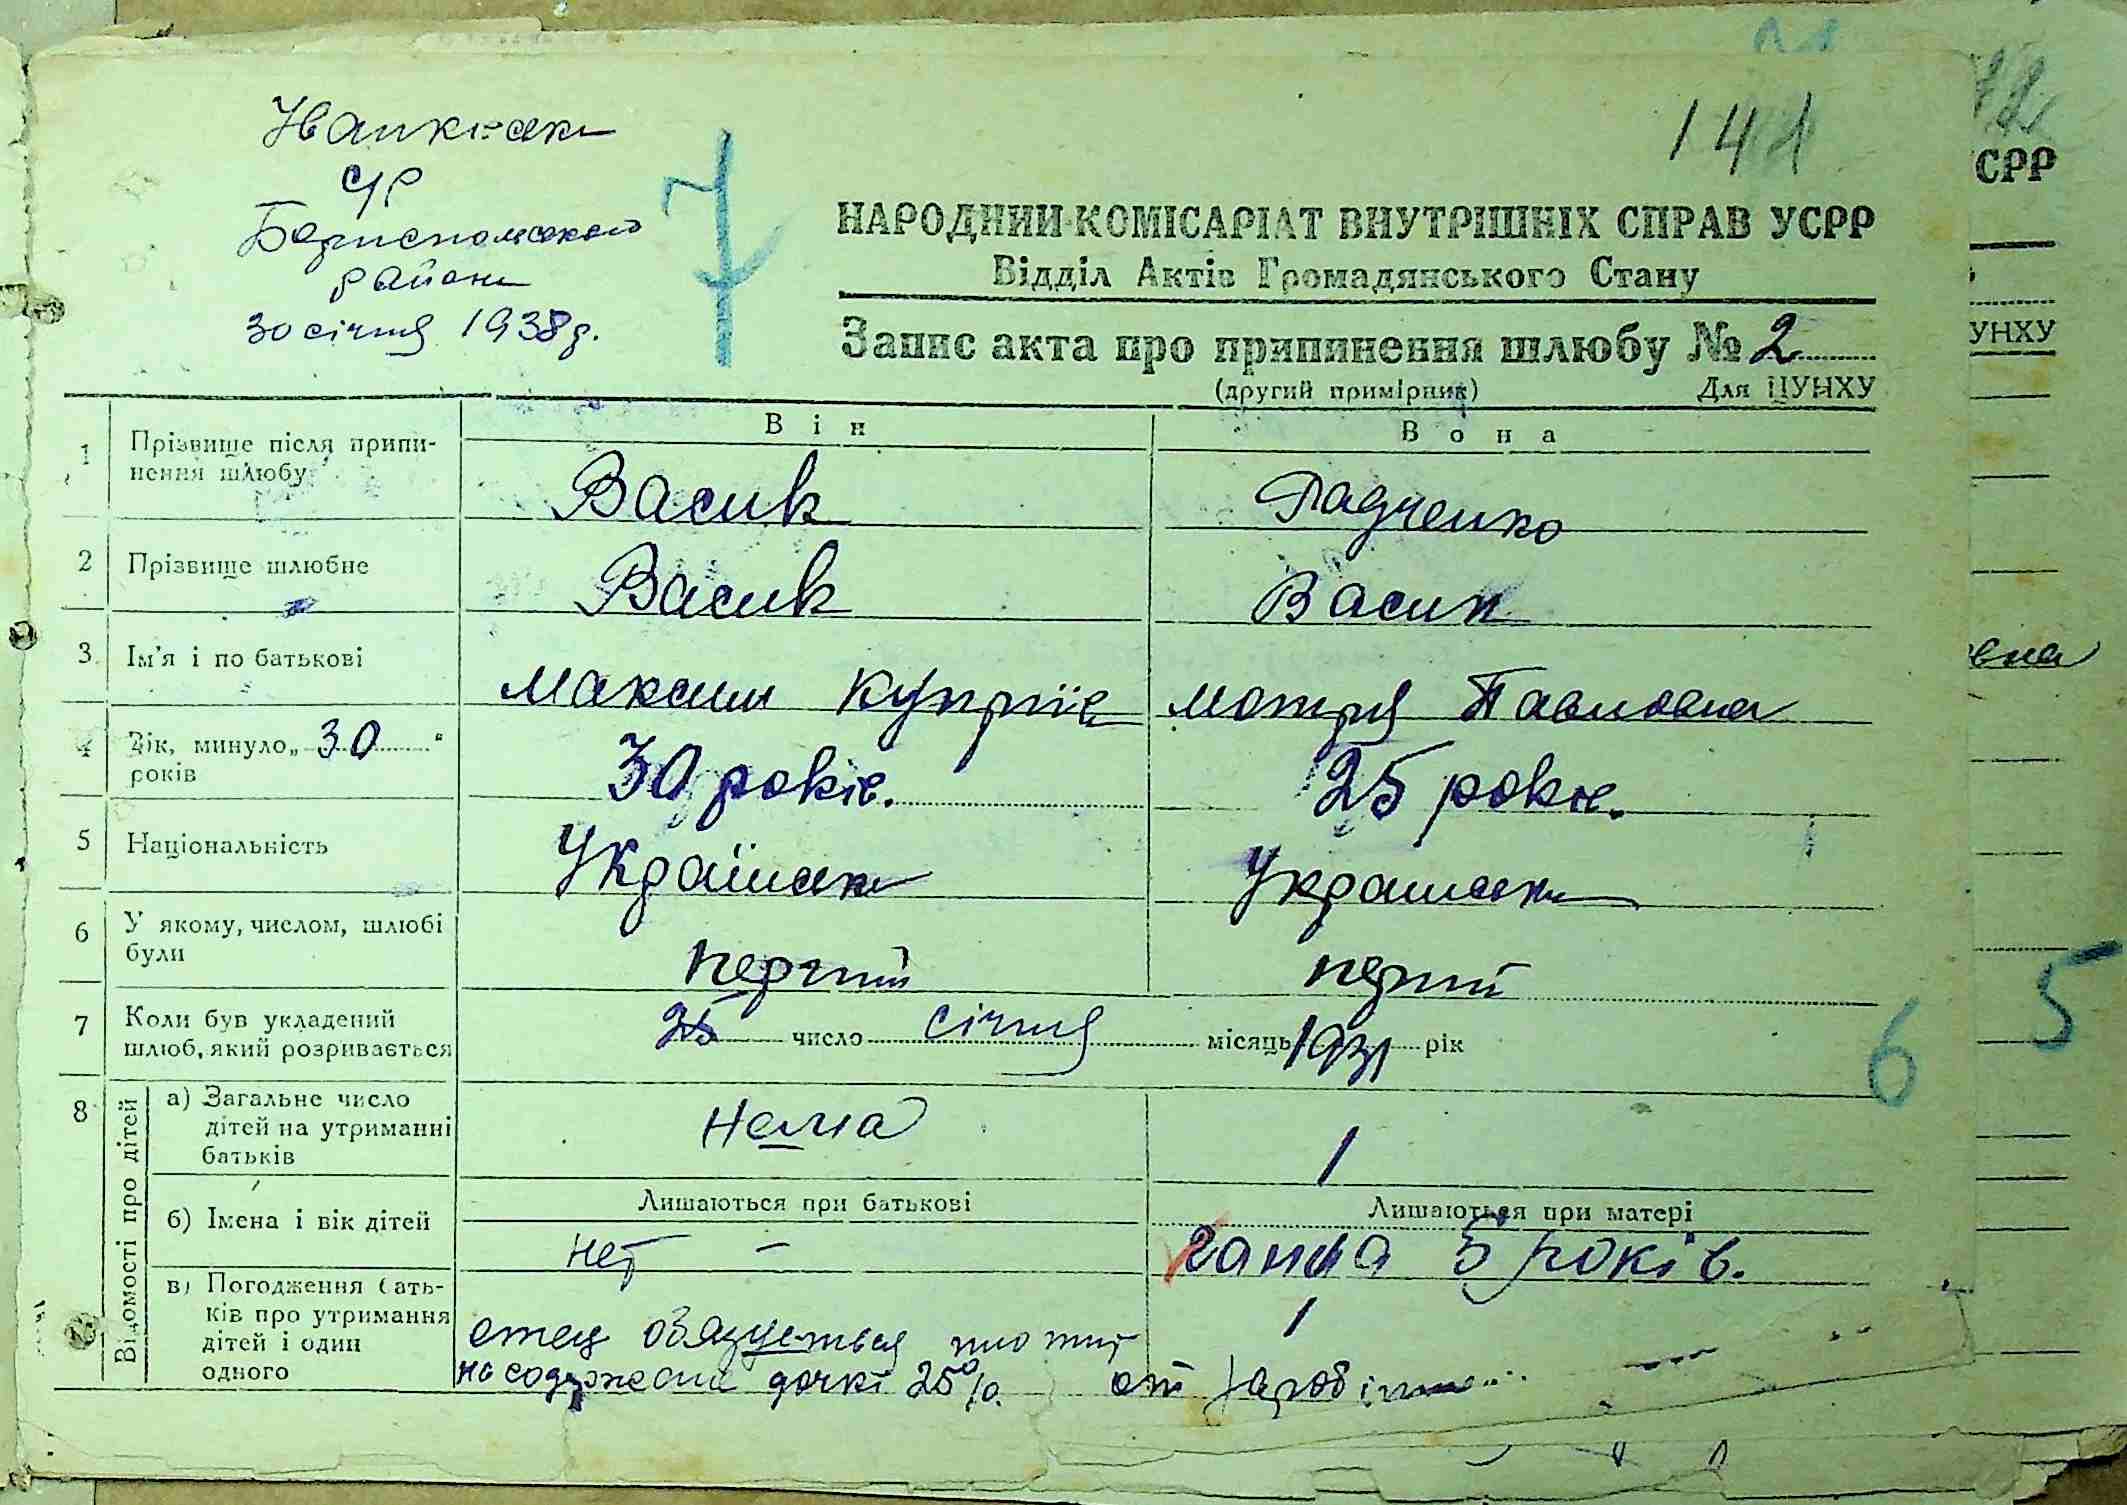 Іванківська
с/р
Бориспольского
района
30 січня 1938 р.
7
141
НАРОДНИЙ КОМІСАРІАТ ВНУТРІШНІХ СПРАВ УСРР
Відділ Актів Громадянського Стану
Запис акта про припинення шлюбу № 2
(другий примірник) Для ЦУНХУ
СРР
УНХУ
Він Вона
1 Прізвище після припи-
нення шлюбу
Васик Радченко
2 Прізвище шлюбне Васик Васик
3 Ім'я і по батькові Максим Купріїв Мотря Павловна
вна
4 Вік, минуло „30“
років
30 років. 25 років.
5 Національність Україська Україська
6 У якому, числом, шлюбі
були
перший перший
5
7 Коли був укладений
шлюб, який розривається
25 число січня місяць 1931 рік
6
8 Відомості про дітей
а) Загальне число
дітей на утриманні
батьків
Нема 1
Лишаються при батькові Лишаються при матері
б) Імена і вік дітей нет – Ганна 5 років.
в) Погодження бать-
ків про утримання
дітей і один
одного
отец обязуеться платит 1
на содержание дочкі 25% от